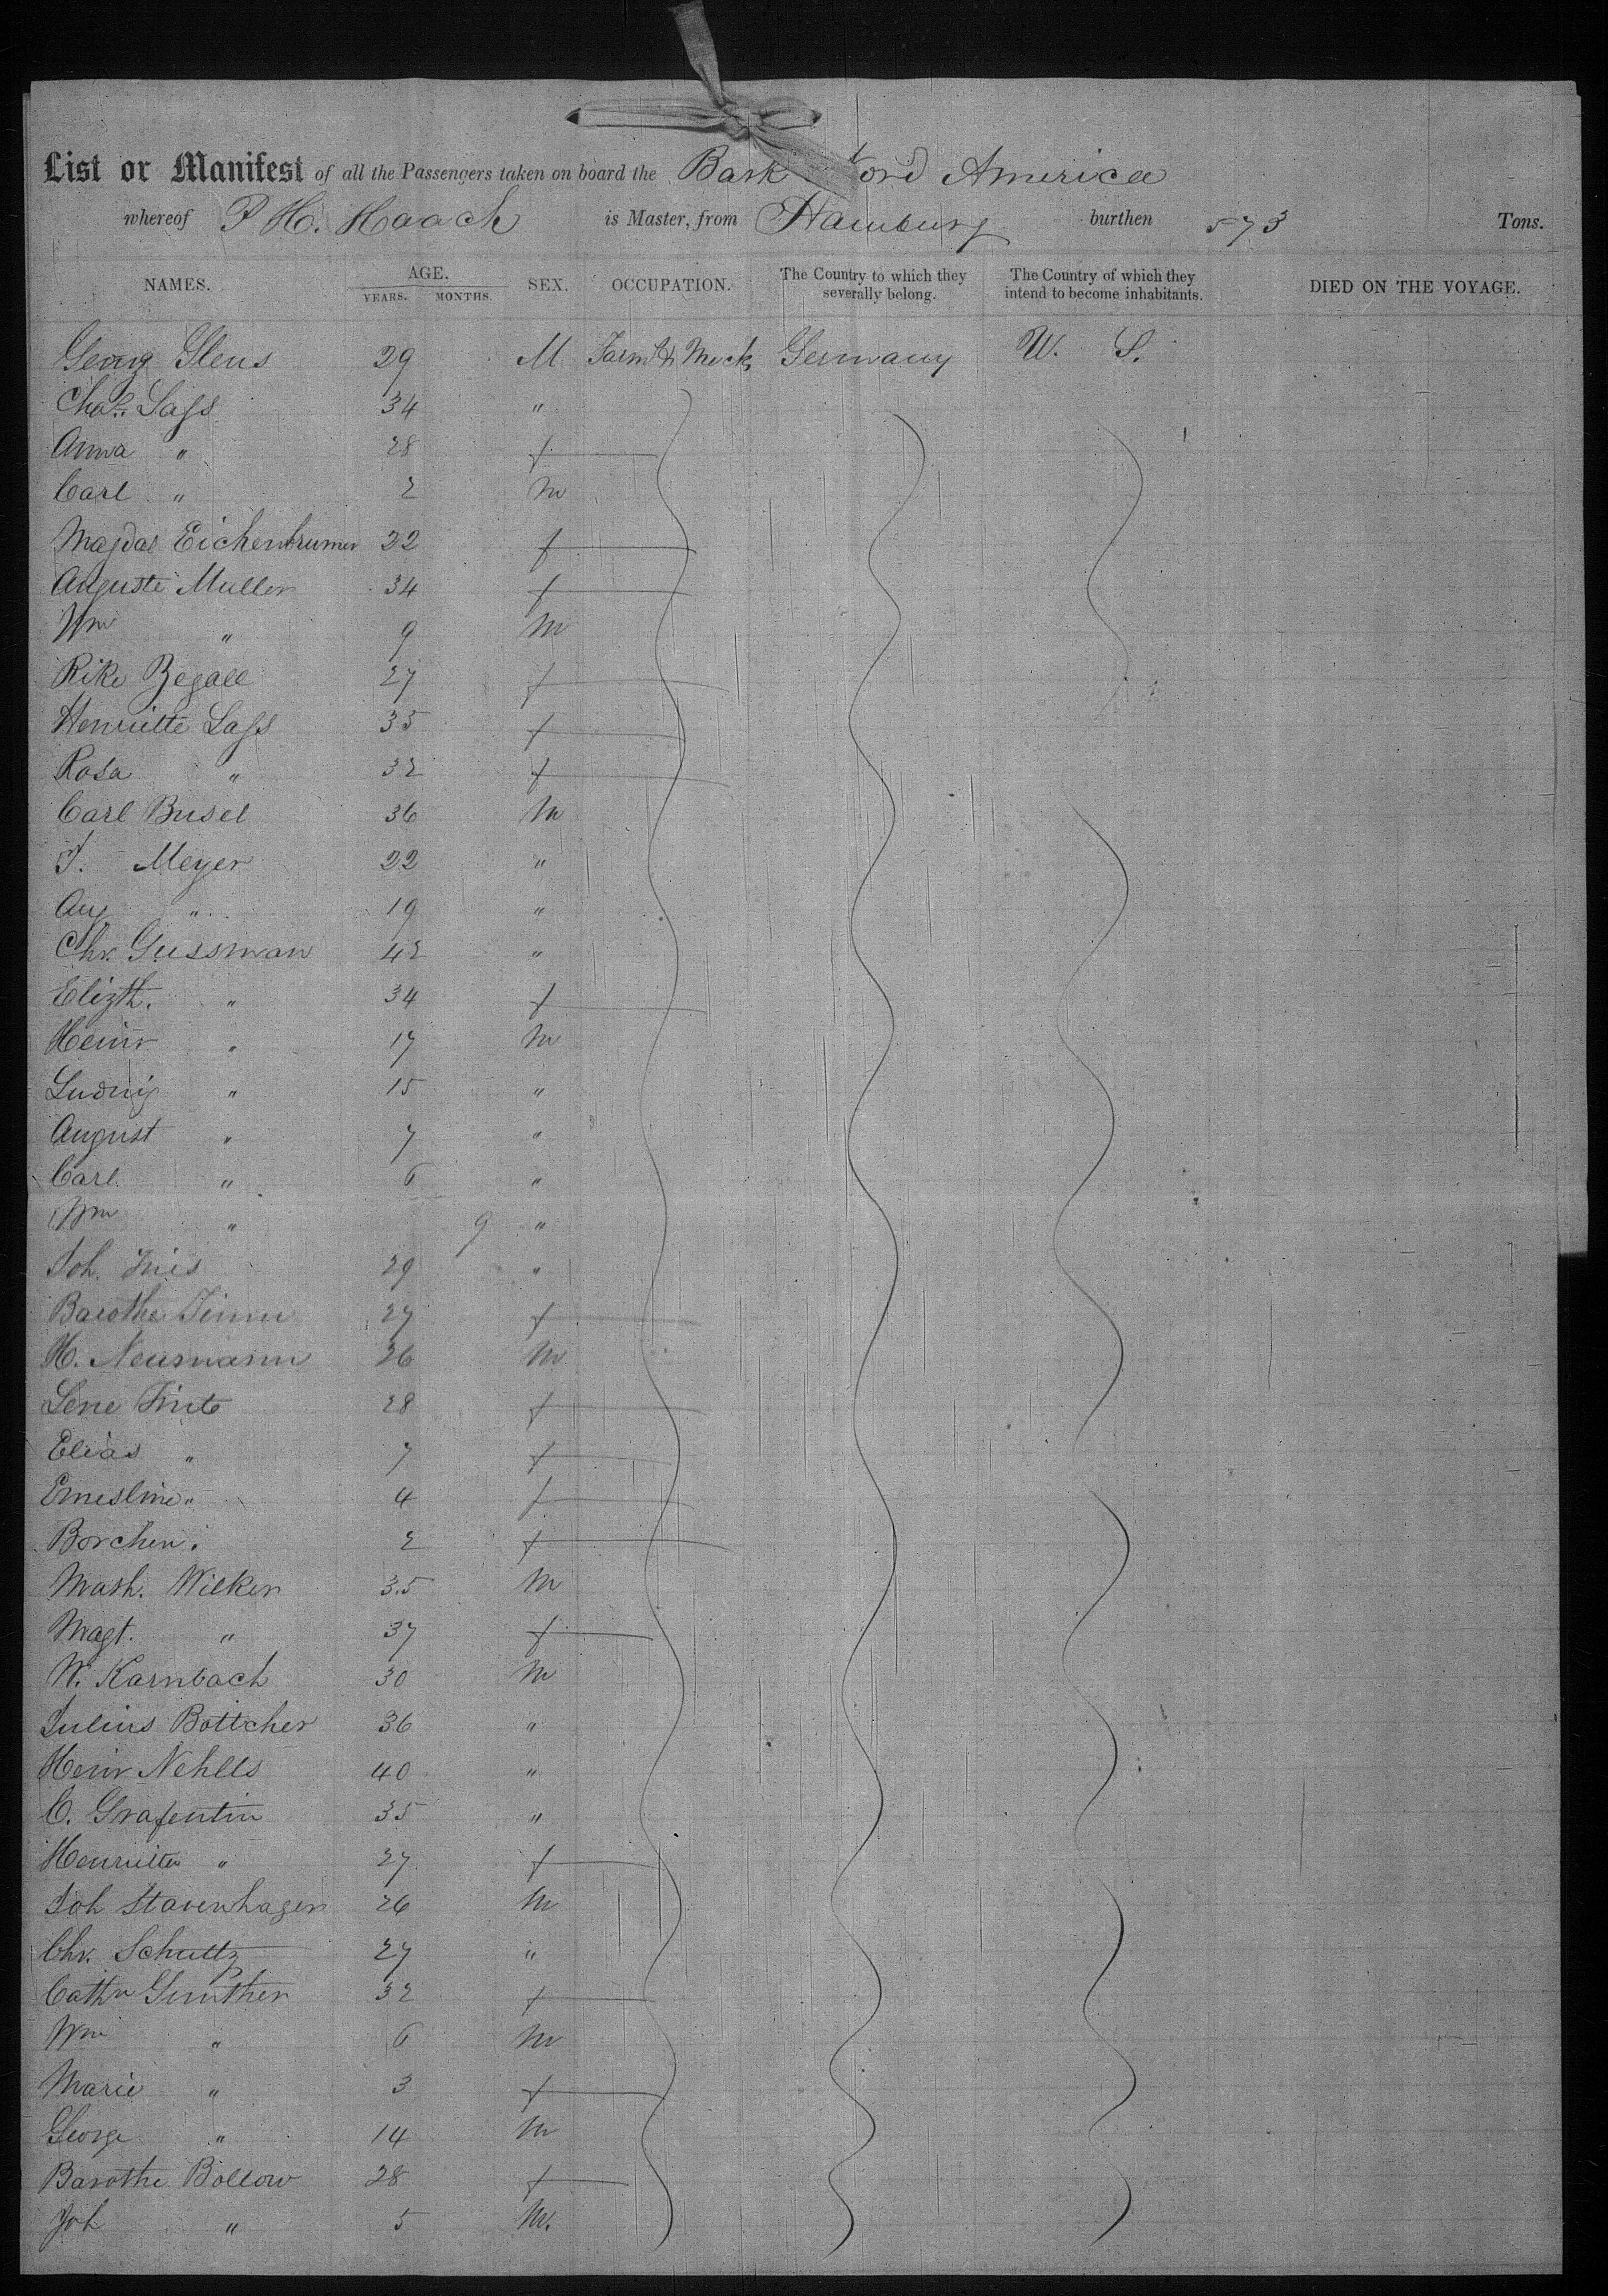 List or Manifest of all the Passengers taken on board the Bark Nord America
whereof P H. Haack is Master, from Hamburg burthen 573 Tons.
NAMES. AGE. YEARS. MONTHS. SEX. OCCUPATION. The Country to which they severally belong. The Country of which they intend to become inhabitants. DIED ON THE VOYAGE.
Georg Stens 29 M Farm & Mech Germany U. S.
Chas. Lass 34 "
Anna " 28 f
Carl " 2 m
Magdal Eichenbrumer 22 f
Auguste Muller 34 f
Wm " 9 m
Rike Begall 27 f
Henriette Lass 35 f
Rosa " 32 f
Carl Busel 36 m
J. Meyer 22 "
Aug " 19 "
Chr. Gussman 42 "
Elizth. " 34 f
Heinr " 17 m
Ludwig " 15 "
August " 7 "
Carl " 6 "
Wm " 9 "
Joh. 29 "
Barothe Timm 27 f
H. Neumann 26 m
Lene 28 f
Elias " 7 f
Ernestine " 4 f
Borchen " 2 f
Math. Wilken 35 m
Magt. " 37 f
W. Karnbach 30 m
Julius Bottcher 36 "
Heinr Nehlls 40 "
C. Grafentin 35 "
Henriette " 27 f
Joh Stavenhagen 26 m
Chr. Schultz 27 "
Cathn Gunther 32 f
Wm " 6 m
Marie " 3 f
George " 14 m
Barothe Bollow 28 f
Joh " 5 M.